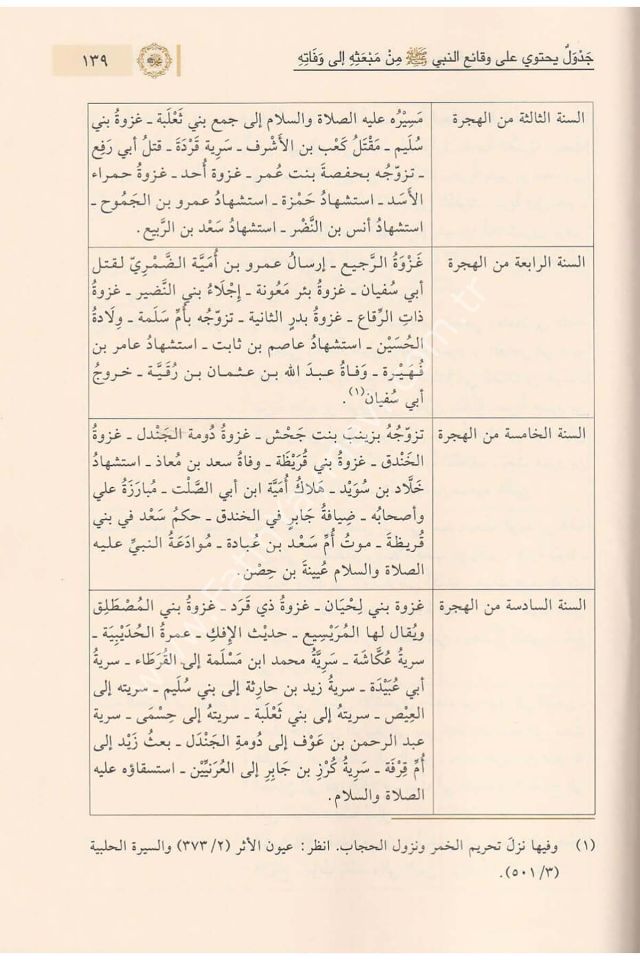 جَدْوَلٌ يحتوي على وقائع النبي ﷺ مِنْ مَبْعَثِهِ إلى وَفَاتِهِ
١٣٩
السنة الثالثة من الهجرة
مَسِيْرُه عليه الصلاة والسلام إلى جمع بني ثَعْلَبة ـ غزوةُ بني
سُلَيم ـ مَقْتَلُ كَعْب بن الأَشْرف ـ سَرِية قَرْدَة ـ قتلُ أبي رَفِع
ـ تزوّجُه بحفصةَ بنت عُمر ـ غزوة أُحد ـ غزوةُ حمراء
الأَسَد ـ استشهادُ حَمْزة ـ استشهادُ عمرو بن الجَمُوح ـ
استشهادُ أنس بن النَّضْر ـ استشهادُ سَعْد بن الرَّبيع.
السنة الرابعة من الهجرة
غَزْوَةُ الرَّجيع ـ إرسالُ عمرو بن أُمَيَّة الضَّمْريّ لقتل
أبي سُفيان ـ غزوةُ بئر مَعُونة ـ إجْلَاءُ بني النَّضير ـ غزوةُ
ذاتِ الرِّقاع ـ غزوةُ بدرٍ الثانية ـ تزوّجُه بأُمِّ سَلَمة ـ وِلَادةُ
الحُسَيْن ـ استشهادُ عاصم بن ثابت ـ استشهادُ عامر بن
فُهَيْرة ـ وَفاةُ عبدَ الله بن عثمان بن رُقَيَّة ـ خروجُ
أبي سُفيان(١).
السنة الخامسة من الهجرة
تزوّجُهُ بزينبَ بنت جَحْش ـ غزوةُ دُومة الجَندل ـ غزوةُ
الخَنْدق ـ غزوةُ بني قُرَيْظَة ـ وفاةُ سعد بن مُعاذ ـ استشهادُ
خَلَّاد بن سُوَيْد ـ هَلَاكُ أُمَيَّة ابن أبي الصَّلْت ـ مُبارَزةُ علي
وأصحابُه ـ ضِيافةُ جَابرٍ في الخندق ـ حكمُ سَعْد في بني
قُريظةَ ـ موتُ أُمِّ سَعْد بن عُبادة ـ مُوادَعَةُ النبيِّ عليه
الصلاة والسلام عُيينةَ بن حِصْن.
السنة السادسة من الهجرة
غزوة بني لِحْيَان ـ غزوةُ ذي قَرَد ـ غزوةُ بني المُصْطَلِق
ويُقال لها المُرَيْسِيع ـ حديْث الإفكِ ـ عمرةُ الحُدَيْبِيَة ـ
سريةُ عُكَّاشَة ـ سَرِيَّةُ محمد ابن مَسْلَمة إلى القُرَطَاء ـ سريةُ
أبي عُبَيْدَة ـ سريةُ زيد بن حارِثة إلى بني سُلَيم ـ سريته إلى
العِيْص ـ سريتهُ إلى بني ثَعْلَبة ـ سريتهُ إلى حِسْمَى ـ سرية
عبد الرحمن بن عَوْف إلى دُومةِ الجَنْدَل ـ بعثُ زَيْد إلى
أُمِّ قِرْفَة ـ سَرِيةُ كُرْزِ بن جَابِر إلى العُرَنيِّيْن ـ استسقاؤه عليه
الصلاة والسلام.
(١) وفيها نزلَ تحريم الخمر ونزول الحجاب. انظر: عيون الأثر (٢/ ٣٧٣) والسيرة الحلبية
(٣/ ٥٠١).